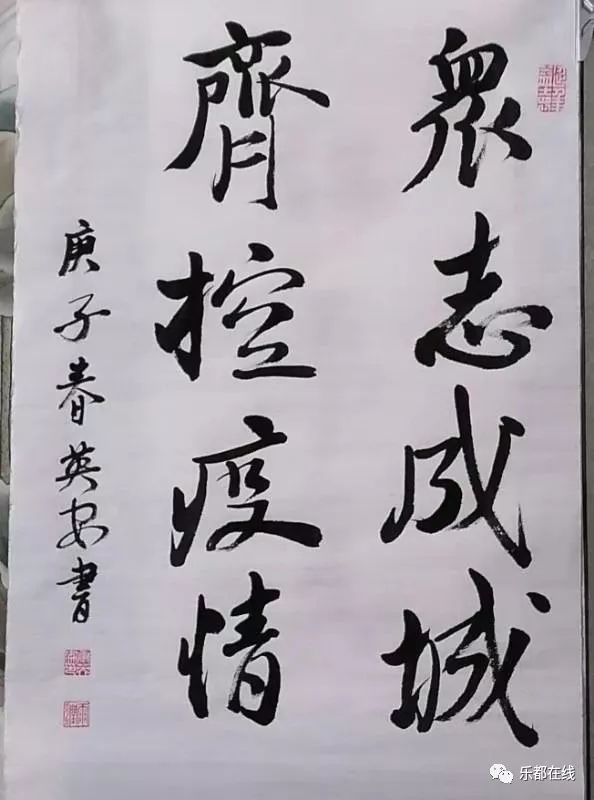 眾志成城
齊控疫情
庚子春英安書
乐都在线